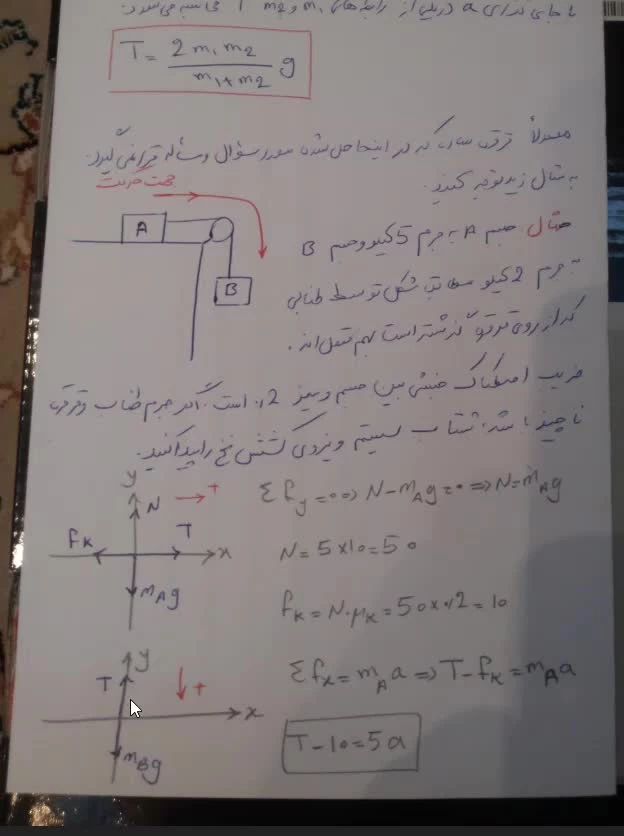 با جای گذاری a در یکی از رابطه های m₁ و m₂ T محاسبه می شود:
T = 2 m₁ m₂ / m₁+m₂ g
معمولاً قرقره ساده که در اینجا حل شده مورد سؤال و مسأله قرار نمی گیرد.
به مثال زیر توجه کنید.
جهت حرکت
A
B
مثال جسم A به جرم 5 کیلو و جسم B
به جرم 2 کیلو مطابق شکل توسط طنابی
که از روی قرقره گذشته است بهم متصل اند.
ضریب اصطکاک جنبشی بین جسم و میز 0.2 است. اگر جرم طناب و قرقره
ناچیز باشد، شتاب سیستم و نیروی کشش نخ را پیدا کنید.
y
N
→ +
fK
T
x
mAg
Σfy = 0 => N - mAg = 0 => N = mAg
N = 5 × 10 = 50
fK = N·μK = 50 × 0.2 = 10
Σfx = mA a => T - fK = mA a
T - 10 = 5a
y
T
↓ +
x
mBg